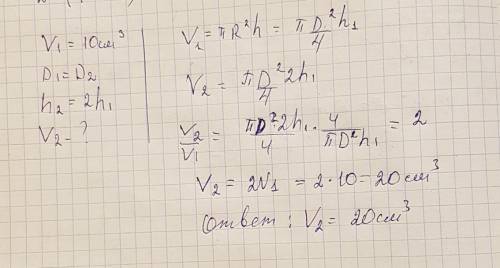 V₁ = 10 см³
D₁ = D₂
h₂ = 2h₁
V₂ - ?
V₁ = πR²h = πD²/4 h₁
V₂ = πD²/4 2h₁
V₂/V₁ = πD²·2h₁/4 · 4/πD²h₁ = 2
V₂ = 2V₁ = 2·10 = 20 см³
Ответ: V₂ = 20 см³